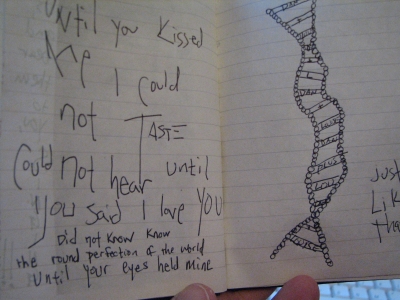 Until you kissed
Me I could
not TASTE
Could not hear until
you said I love you
Did not know know
the round perfection of the world
Until your eyes held mine
Just
Lik
tha